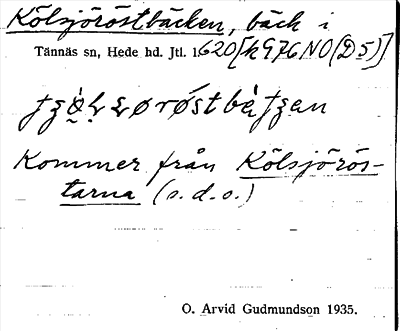 Kölsjöröstbäcken, bäck i
Tännäs sn, Hede hd. Jtl. 1:620[k976NO(D5)]
Kommer från Kölsjörös-
tarna (s.d.o.)
O. Arvid Gudmundson 1935.